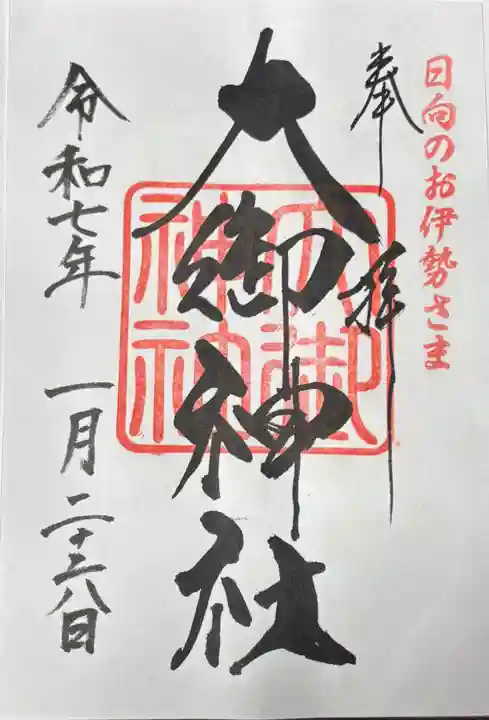 日向のお伊勢さま
奉拝
大御神社
大御
神社
令和七年 一月二十八日